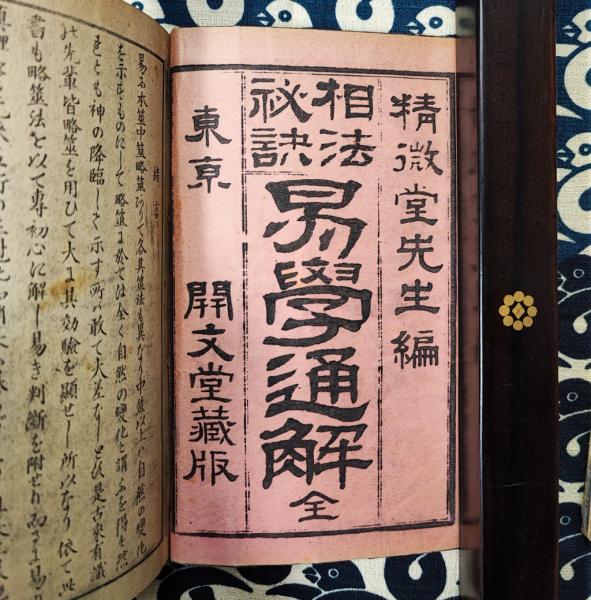 精微堂先生編
相法
祕訣
易學通解 全
東亰 開文堂藏版
緒言
易に本筮中筮略筮ありて各其筮法も異なり中筮以上ハ自然の變化
を示すものにして略筮に於ては全く自然の變化と謂ふを得も然
れとも神の降臨して示す所ハ敢て大差なしとす是古來有識
の先輩皆略筮を用ひて大に其効驗を顯せし所以なり依て此
書も略筮法を以て專初心に解し易き判斷を附せり